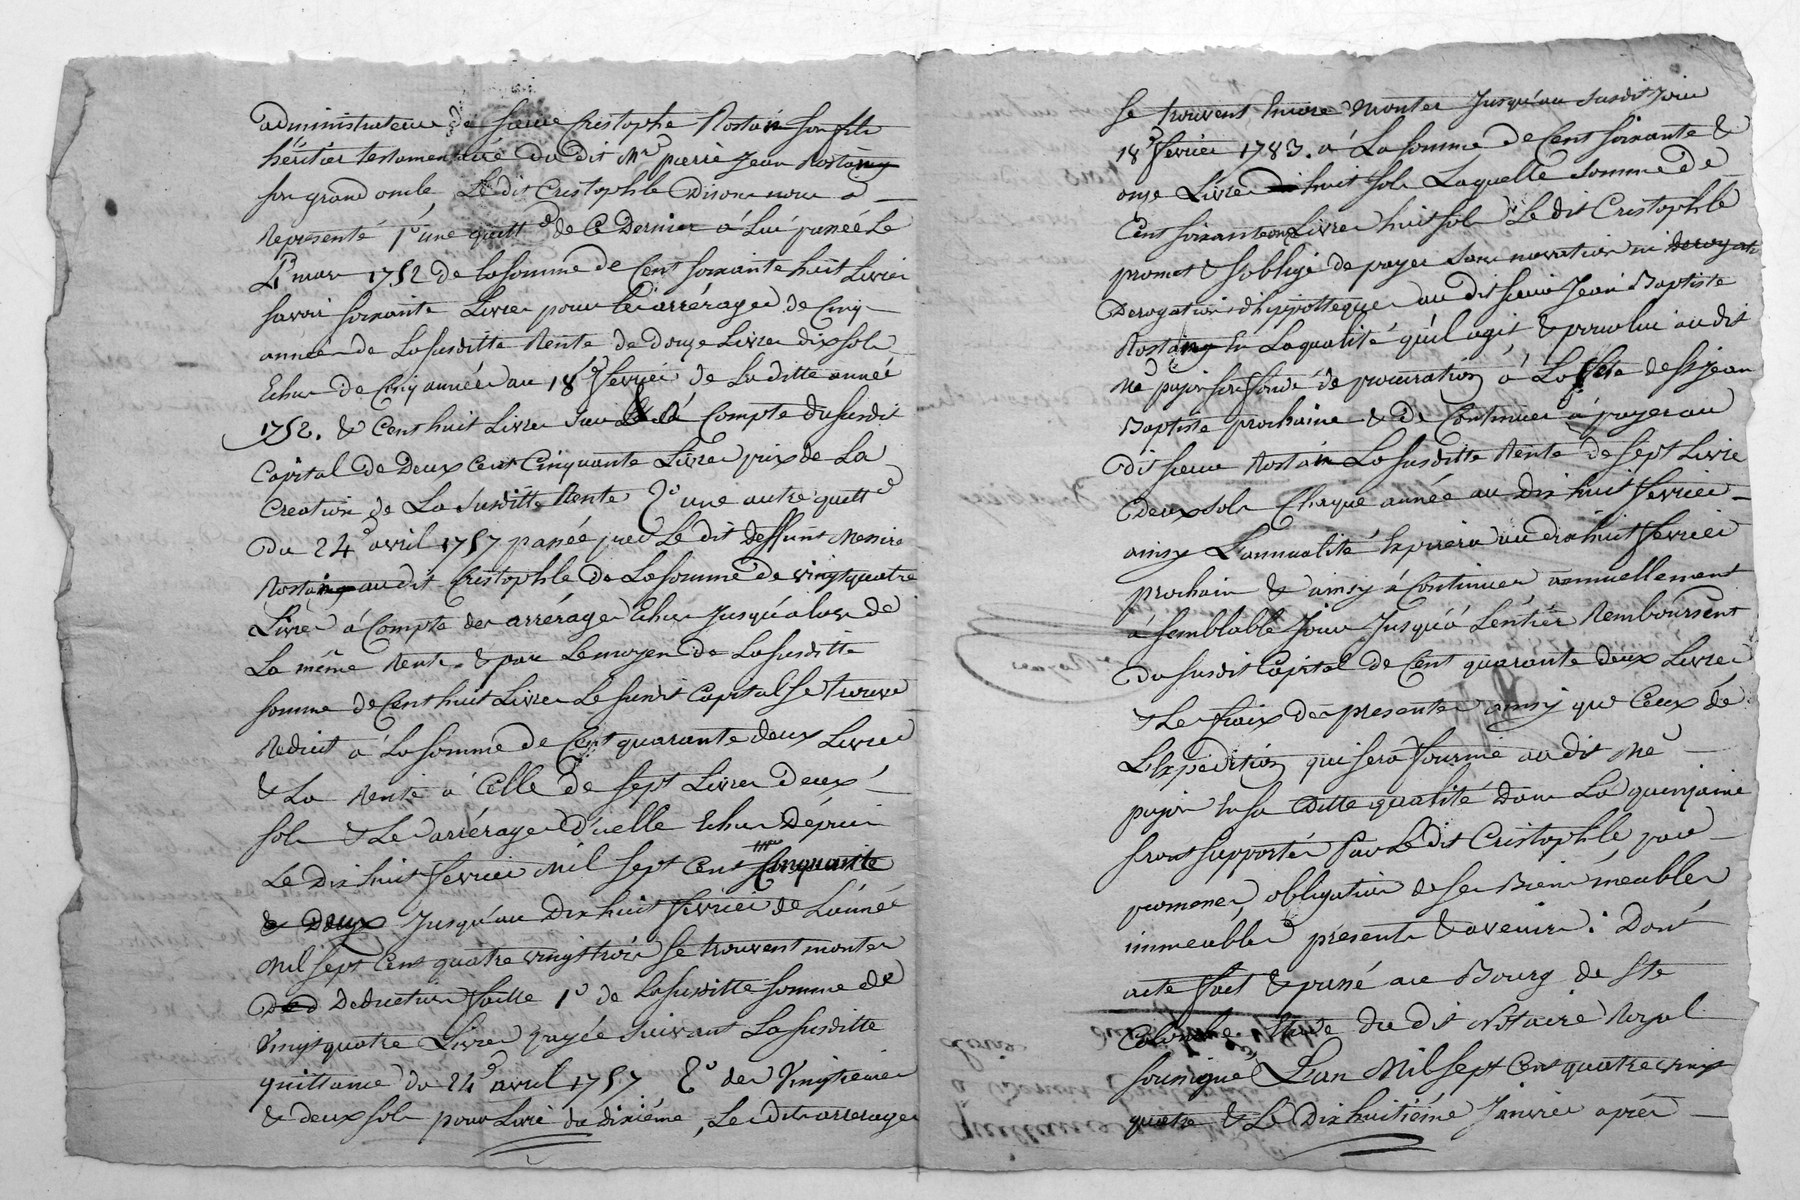 administrateur de sieur Cristophe Rostain son fils
héritier testamentaire du dit Mre pierre Jean Rostaing
son grand oncle, Le dit Cristophle Disons nous a
Representé 1° une quittce de Ce Dernier à Lui passée Le
1er mars 1752 de la somme de Cent soixante huit Livres
savoir soixante Livres pour les arrérages de Cinq
années de La susditte Rente de douze Livres dix sols
Echus de Cinq années au 18e fevrier de La ditte année
1752. & Cent huit Livres à Compte du susdit
Capital de Deux Cent Cinquante Livres prix de La
Creation de La susditte Rente 2° une autre quittce
du 24e avril 1757 passée par Le dit deffunt Messire
Rostaing au dit Cristophle de La somme de vingt quatre
Livres à Compte des arrérages Echus Jusqu'alors de
La même Rente. & par Le moyen de La susditte
somme de Cent huit Livres Le susdit Capital se trouve
Reduit à La somme de Cent quarante deux Livres
& La Rente à Celle de sept Livres Deux
sols & Les arrérages d'icelle Echus Dépuis
Le Dix huit fevrier Mil sept Cent Cinquante
& Deux Jusqu'au Dix huit fevrier de L'année
Mil sept Cent quatre vingt trois se trouvent monter
Deduction faitte 1° de La susditte somme de
Vingt quatre Livres payée suivant La susditte
quittance du 24e avril 1757 2° des Vingtiemes
& deux sols pour Livre du dixiéme, Les dits arrerages
se trouvent Encore Monter Jusqu'au susdit Jour
18e fevrier 1783. à La somme de Cent soixante &
onze Livres huit sols Laquelle somme de
Cent soixante onze Livres huit sols Le dit Cristophle
promet & s'oblige de payer sans novation ni
Derogation d'hippotteques au dit sieur Jean Baptiste
Rostaing En La qualité qu'il agit, & pour lui au dit
Me pujon son fondé de procuration à La fête de St jean
Baptiste prochaine & de Continuer à payer au
dit sieur Rostain La susditte Rente de sept Livres
Deux sols Chaque année au Dix huit fevrier
ainsy L'annualité Expirera au dix huit fevrier
prochain & ainsy à Continuer annuellement
à semblable Jour Jusqu'à L'entier Remboursent
du susdit Capital de Cent quarante deux Livres
& Les fraix des presentes ainsy que Ceux de
L'Expedition qui sera fournie au dit Me
pujon En sa ditte qualité Dans La quinzaine
seront supportés Par Le dit Cristophle par
promesse, obligation de ses Biens meubles
immeubles présents & avenir: Dont
acte fait & passé au Bourg de Ste
Colombe Etude du dit Notaire Royal
soussigné L'an Mil sept Cent quatre vingt
quatre & Le Dix huitiéme Janvier après